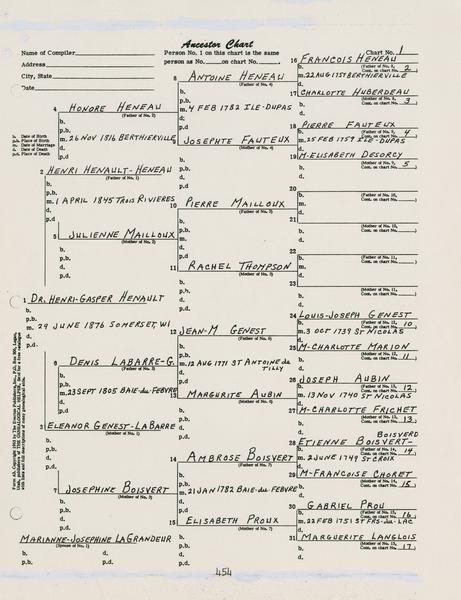 Ancestor Chart
Name of Compiler
Person No. 1 on this chart is the same
person as No. on chart No.
Chart No. 1
Address
City, State
Date
16 FRANCOIS HENEAU
b. (Father of No. 8, Cont. on chart No. 2)
m. 22 AUG 1757 BERTHIERVILLE
d.
8 ANTOINE HENEAU
(Father of No. 4)
b.
p.b.
m. 4 FEB 1782 ILE-DUPAS
d.
p.d.
17 CHARLOTTE HUBERDEAU
b. (Mother of No. 8, Cont. on chart No. 3)
d.
4 HONORE HENEAU
(Father of No. 2)
b.
p.b.
m. 26 NOV 1816 BERTHIERVILLE
d.
p.d.
b. Date of Birth
p.b. Place of Birth
m. Date of Marriage
d. Date of Death
p.d. Place of Death
18 PIERRE FAUTEUX
b. (Father of No. 9, Cont. on chart No. 4)
m. 25 FEB 1759 ILE-DUPAS
d.
9 JOSEPHTE FAUTEUX
(Mother of No. 4)
b.
p.b.
d.
p.d.
19 M-ELISABETH DESORCY
b. (Mother of No. 9, Cont. on chart No. 5)
d.
2 HENRI HENAULT-HENEAU
(Father of No. 1)
b.
p.b.
m. 1 APRIL 1845 TROIS RIVIERES
d.
p.d.
20
b. (Father of No. 10, Cont. on chart No. )
m.
d.
10 PIERRE MAILLOUX
(Father of No. 5)
b.
p.b.
m.
d.
p.d.
21
b. (Mother of No. 10, Cont. on chart No. )
d.
5 JULIENNE MAILLOUX
(Mother of No. 2)
b.
p.b.
d.
p.d.
22
b. (Father of No. 11, Cont. on chart No. )
m.
d.
11 RACHEL THOMPSON
(Mother of No. 5)
b.
p.b.
d.
p.d.
23
b. (Mother of No. 11, Cont. on chart No. )
d.
1 DR. HENRI-GASPER HENAULT
b.
p.b.
m. 29 JUNE 1876 SOMERSET, WI
d.
p.d.
24 LOUIS-JOSEPH GENEST
b. (Father of No. 12, Cont. on chart No. 10)
m. 3 OCT 1739 ST NICOLAS
d.
12 JEAN-M GENEST
(Father of No. 6)
b.
p.b.
m. 12 AUG 1771 ST ANTOINE de TILLY
d.
p.d.
25 M-CHARLOTTE MARION
b. (Mother of No. 12, Cont. on chart No. 11)
d.
6 DENIS LABARRE-G.
(Father of No. 3)
b.
p.b.
m. 23 SEPT 1805 BAIE-du-FEBVRE
d.
p.d.
26 JOSEPH AUBIN
b. (Father of No. 13, Cont. on chart No. 12)
m. 13 NOV 1740 ST NICOLAS
d.
13 MARGURITE AUBIN
(Mother of No. 6)
b.
p.b.
d.
p.d.
27 M-CHARLETTE FRICHET
b. (Mother of No. 13, Cont. on chart No. 13)
d.
3 ELEANOR GENEST-LABARRE
(Mother of No. 1)
b.
p.b.
d.
p.d.
28 ETIENNE BOISVERT-BOISVERD
b. (Father of No. 14, Cont. on chart No. 14)
m. 2 JUNE 1749 ST CROIX
d.
14 AMBROSE BOISVERT
(Father of No. 7)
b.
p.b.
m. 21 JAN 1782 BAIE-du-FEBVRE
d.
p.d.
29 M-FRANCOISE CHORET
b. (Mother of No. 14, Cont. on chart No. 15)
d.
7 JOSEPHINE BOISVERT
(Mother of No. 3)
b.
p.b.
d.
p.d.
30 GABRIEL PROU
b. (Father of No. 15, Cont. on chart No. 16)
m. 22 FEB 1751 ST FRS-du-LAC
d.
15 ELISABETH PROUX
(Mother of No. 7)
b.
p.b.
d.
p.d.
31 MARGUERITE LANGLOIS
b. (Mother of No. 15, Cont. on chart No. 17)
d.
MARIANNE-JOSEPHINE LAGRANDEUR
(Spouse of No. 1)
b. d.
p.b. p.d.
454